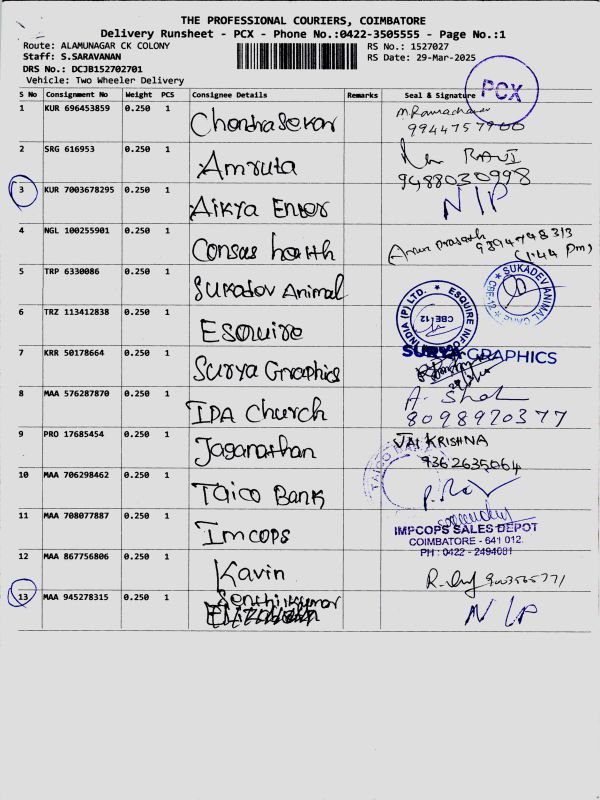 THE PROFESSIONAL COURIERS, COIMBATORE
Delivery Runsheet - PCX - Phone No.:0422-3505555 - Page No.:1
Route: ALAMUNAGAR CK COLONY
RS No.: 1527027
Staff: S.SARAVANAN
RS Date: 29-Mar-2025
DRS No.: DCJB152702701
Vehicle: Two Wheeler Delivery
PCX
S No Consignment No Weight PCS Consignee Details Remarks Seal & Signature
1 KUR 696453859 0.250 1 Chandrasekar
9944757900
2 SRG 616953 0.250 1 Amruta RAVI
9488030998
3 KUR 7003678295 0.250 1 Aikya Enter N/P
4 NGL 100255901 0.250 1 Consas hoith Arun prasath 9394748313
(1:44 Pm)
5 TRP 6330086 0.250 1 Sukadev Animal
SUKADEV ANIMAL CARE CBE-12
6 TRZ 113412838 0.250 1 Esquire
ESQUIRE INDIA (P) LTD. CBE-12
7 KRR 50178664 0.250 1 Surya Graphics SURYA GRAPHICS
8 MAA 576287870 0.250 1 IPA Church A. Shol
8098920377
9 PRO 17685454 0.250 1 Jaganathan JAI KRISHNA
9362635064
10 MAA 706298462 0.250 1 Taico Bank TAICO BANK
11 MAA 708077887 0.250 1 Imcops
IMPCOPS SALES DEPOT
COIMBATORE - 641 012.
PH : 0422 - 2494081
12 MAA 867756806 0.250 1 Kavin
13 MAA 945278315 0.250 1 Senthilkumar N/P